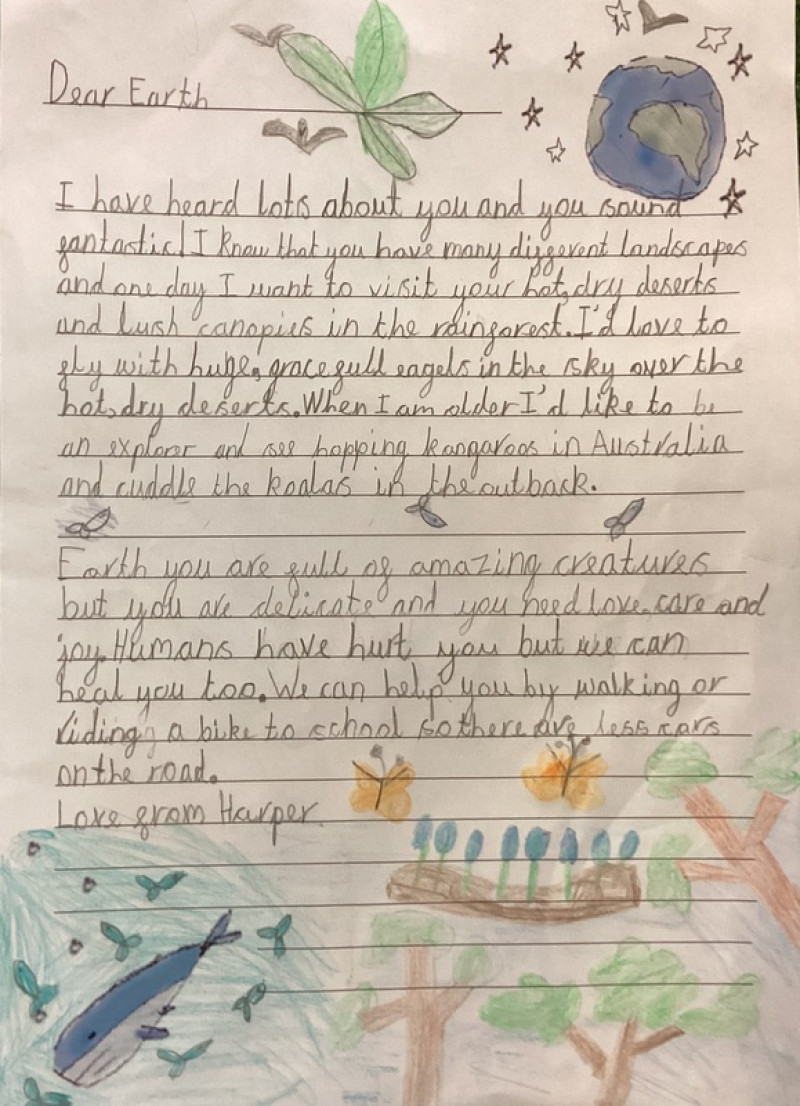 Dear Earth
I have heard lots about you and you sound
fantastic! I know that you have many different landscapes
and one day I want to visit your hot, dry deserts
and lush canopies in the rainforest. I'd love to
fly with huge, gracefull eagels in the sky over the
hot, dry deserts. When I am older I'd like to be
an explorer and see hopping kangaroos in Australia
and cuddle the koalas in the outback.
Earth you are full of amazing creatures
but you are delicate and you need love, care and
joy. Humans have hurt you but we can
heal you too. We can help you by walking or
riding a bike to school so there are less cars
on the road.
Love from Harper.